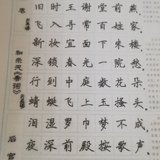 巷
旧时王谢堂前燕
飞入寻常百姓家。
和乐天《春词》
新妆宜面下朱楼
深锁春光一院愁
行到中庭数花朵
蜻蜓飞上玉搔头
后宫
泪湿罗巾梦不成
夜深前殿按歌